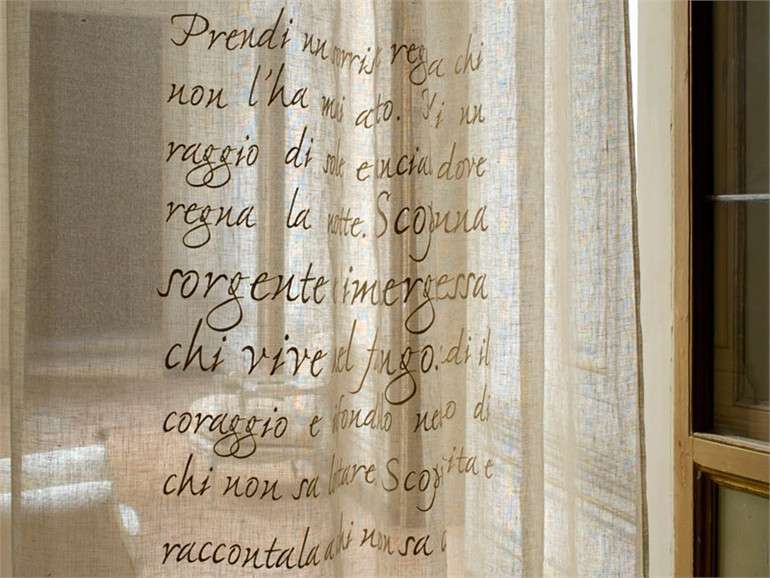 Prendi un sorriso rega chi
non l'ha mai ato. Vi un
raggio di sole e ncia dove
regna la notte. Scop una
sorgente imerge ssa
chi vive nel fango. di il
coraggio e fondilo ne o di
chi non sa lottare Scop ita e
raccontala a chi non sa